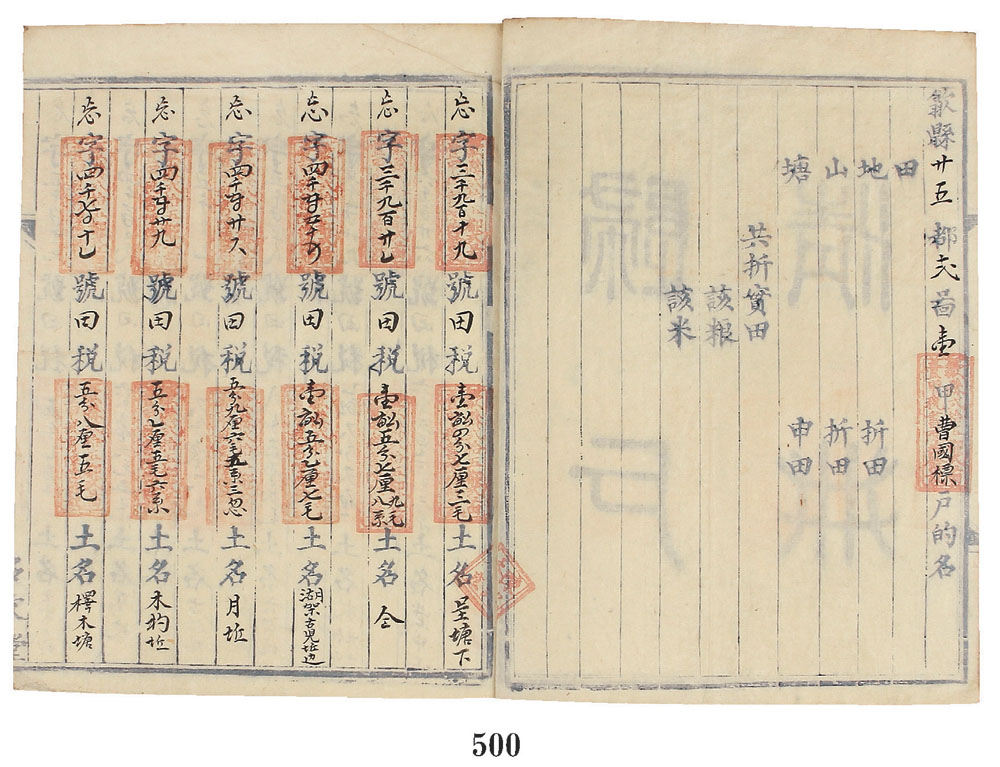 歙縣廿五都弍啚壹甲曹國標戶的名
田
地 折田
山 折田
塘 申田
共折實田
該粮
該米
忘字三千九百十九號田税壹畝四分七厘三毛土名呈塘下
忘字三千九百廿七號田税壹畝五分七厘九毛八系土名仝
忘字四千 號田税壹畝五分乙厘七毛土名湖 邊
忘字四千 廿八號田税五分九厘六毛五系三忽土名月坵
忘字四千 廿九號田税五分乙厘五毛六系土名木杓坵
忘字四千 十七號田税五分八厘五毛土名檡木塘
500